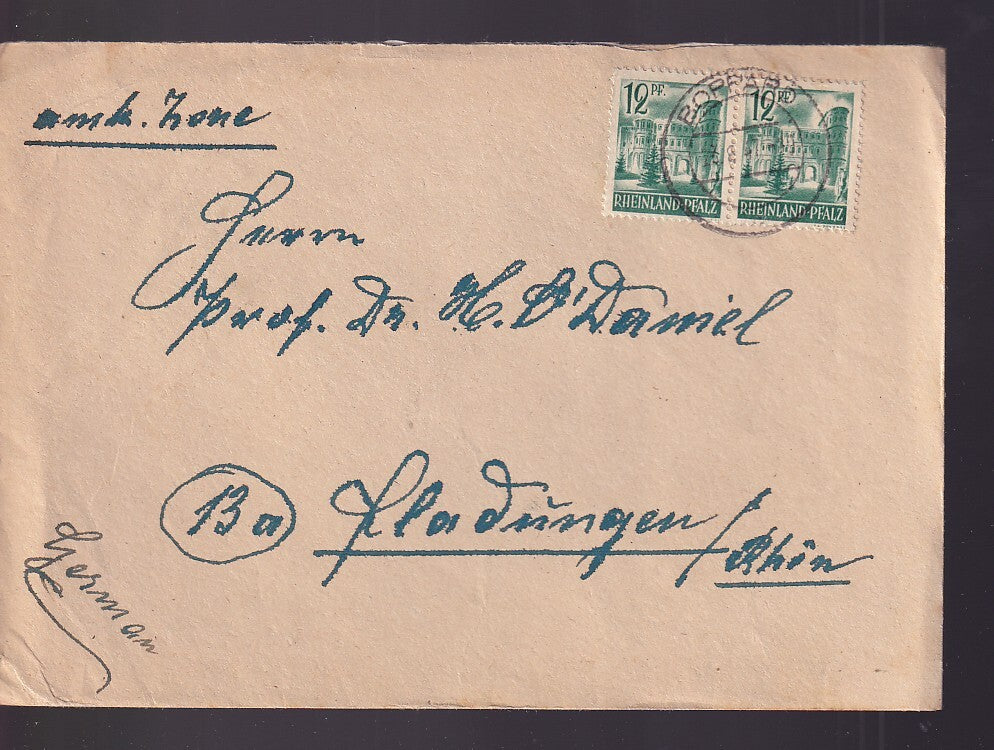 amk. Zone
12 PF.
RHEINLAND-PFALZ
12 PF.
RHEINLAND-PFALZ
BOPPARD
Herrn
Prof. Dr. H. O'Daniel
13a Fladungen/Rhön
German